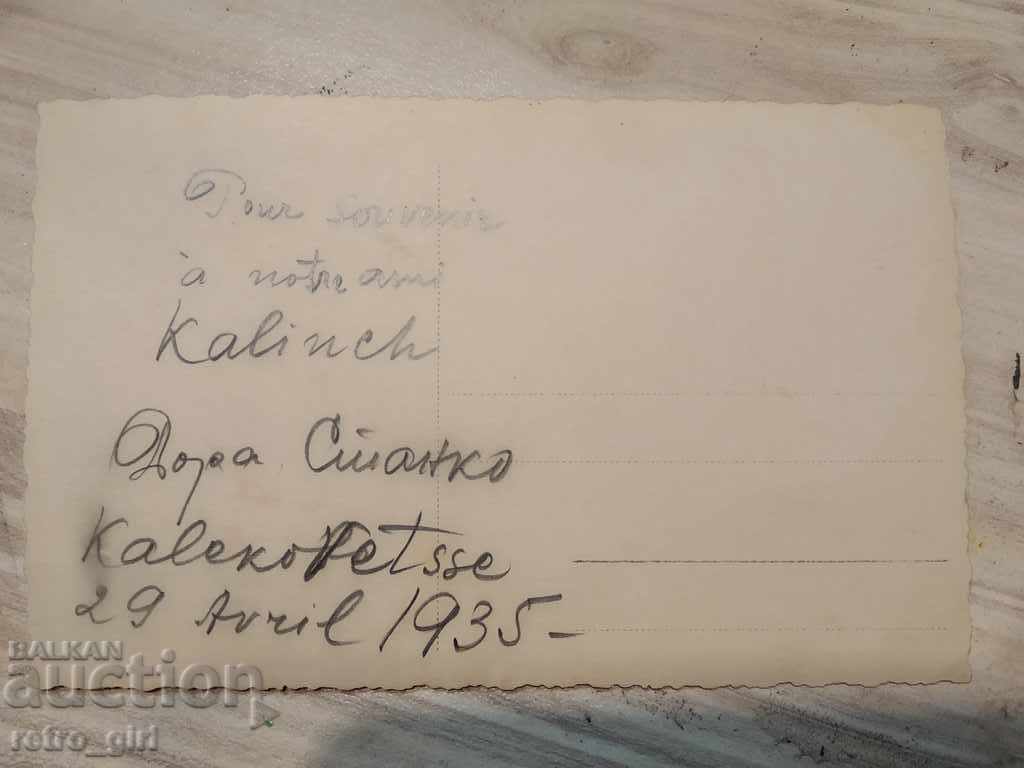 Pour souvenir
à notre ami
Kalinch
Дора Станко
29 Avril 1935-
BALKAN
auction
retro_girl